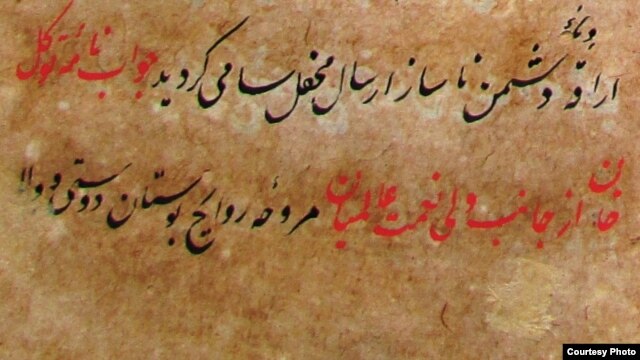 اراقهٔ دماء دشمن ناساز ارسال محفل سامی گردید جواب نامهٔ توکل
خان از جانب ولی نعمت عالمیان مروحهٔ روایح بوستان دوستی و ولا
Courtesy Photo